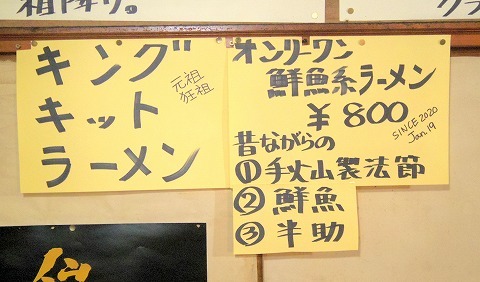 箱降り。
キング
キット
ラーメン
元祖
狂祖
オンリーワン
鮮魚系ラーメン
¥800
SINCE 2020
Jan. 19
昔ながらの
①手火山製法節
②鮮魚
③半助